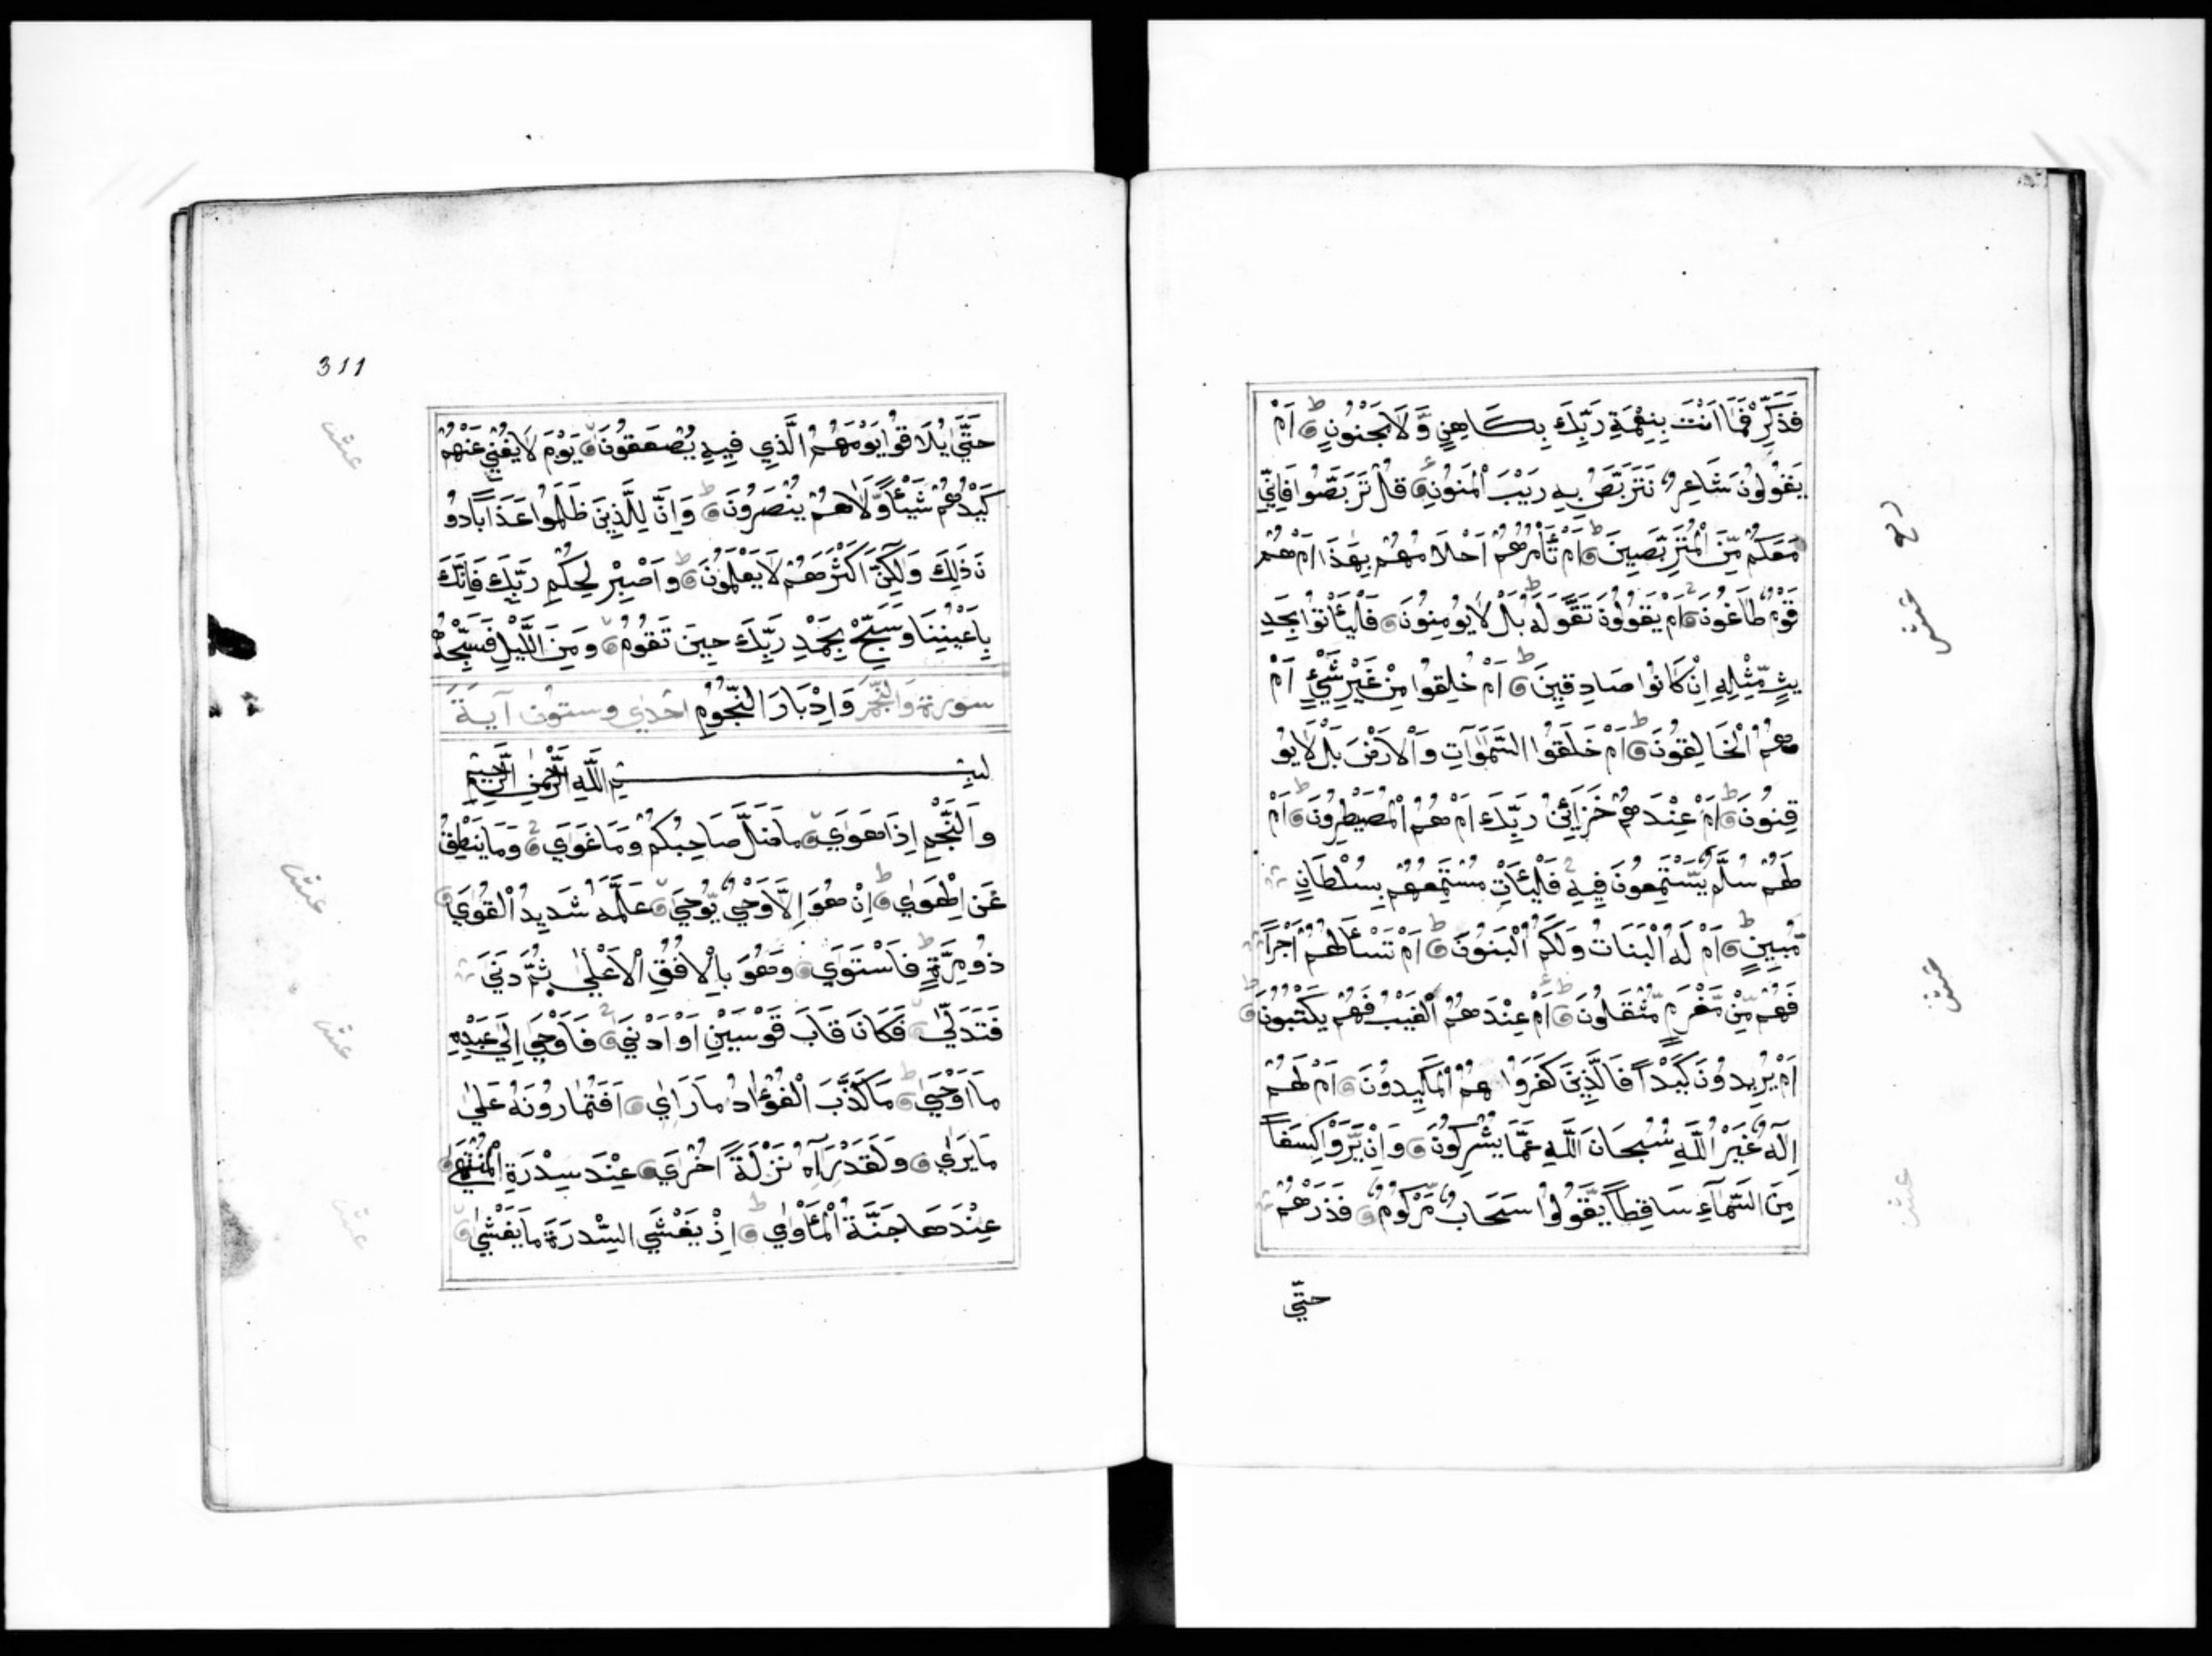 فَذَكِّرْ فَمَا اَنْتَ بِنِعْمَةِ رَبِّكَ بِكَاهِنٍ وَّلَا مَجْنُونٍ ط اَمْ
يَقُولُونَ شَاعِرٌ نَتَرَبَّصُ بِهِ رَيْبَ الْمَنُونِ قُلْ تَرَبَّصُوا فَاِنِّي
مَعَكُمْ مِّنَ الْمُتَرَبِّصِينَ ط اَمْ تَأْمُرُهُمْ اَحْلَامُهُمْ بِهٰذَا اَمْ هُمْ
قَوْمٌ طَاغُونَ اَمْ يَقُولُونَ تَقَوَّلَهُ ط بَلْ لَا يُومِنُونَ فَلْيَأْتُوا بِحَدِ
يثٍ مِّثْلِهِ اِنْ كَانُوا صَادِقِينَ ط اَمْ خُلِقُوا مِنْ غَيْرِ شَيْءٍ اَمْ
هُمُ الْخَالِقُونَ ط اَمْ خَلَقُوا السَّمٰوَاتِ وَالْاَرْضَ بَلْ لَا يُو
قِنُونَ ط اَمْ عِنْدَهُمْ خَزَائِنُ رَبِّكَ اَمْ هُمُ الْمُصَيْطِرُونَ ط اَمْ
لَهُمْ سُلَّمٌ يَّسْتَمِعُونَ فِيهِ فَلْيَأْتِ مُسْتَمِعُهُمْ بِسُلْطَانٍ
مُّبِينٍ ط اَمْ لَهُ الْبَنَاتُ وَلَكُمُ الْبَنُونَ ط اَمْ تَسْأَلُهُمْ اَجْرًا
فَهُمْ مِّنْ مَّغْرَمٍ مُّثْقَلُونَ ط اَمْ عِنْدَهُمُ الْغَيْبُ فَهُمْ يَكْتُبُونَ ط
اَمْ يُرِيدُونَ كَيْدًا فَالَّذِينَ كَفَرُوا هُمُ الْمَكِيدُونَ اَمْ لَهُمْ
اِلٰهٌ غَيْرُ اللّٰهِ سُبْحَانَ اللّٰهِ عَمَّا يُشْرِكُونَ وَاِنْ يَّرَوْا كِسَفًا
مِنَ السَّمَآءِ سَاقِطًا يَّقُولُوا سَحَابٌ مَّرْكُومٌ فَذَرْهُمْ
حتّى
عشر
عشر
عشر
311
حَتَّى يُلَاقُوا يَوْمَهُمُ الَّذِي فِيهِ يُصْعَقُونَ يَوْمَ لَا يُغْنِي عَنْهُمْ
كَيْدُهُمْ شَيْئًا وَّلَا هُمْ يُنْصَرُونَ ط وَاِنَّ لِلَّذِينَ ظَلَمُوا عَذَابًا دُو
نَ ذٰلِكَ وَلٰكِنَّ اَكْثَرَهُمْ لَا يَعْلَمُونَ ط وَاصْبِرْ لِحُكْمِ رَبِّكَ فَاِنَّكَ
بِاَعْيُنِنَا وَسَبِّحْ بِحَمْدِ رَبِّكَ حِينَ تَقُومُ وَمِنَ اللَّيْلِ فَسَبِّحْهُ
سورة والنجم وَاِدْبَارَ النُّجُومِ احدى وستون آية
بسم اللّٰه الرحمن الرحيم
وَالنَّجْمِ اِذَا هَوٰى مَا ضَلَّ صَاحِبُكُمْ وَمَا غَوٰى وَمَا يَنْطِقُ
عَنِ الْهَوٰى ط اِنْ هُوَ اِلَّا وَحْيٌ يُّوحٰى عَلَّمَهُ شَدِيدُ الْقُوٰى
ذُو مِرَّةٍ ط فَاسْتَوٰى وَهُوَ بِالْاُفُقِ الْاَعْلٰى ثُمَّ دَنٰى
فَتَدَلّٰى فَكَانَ قَابَ قَوْسَيْنِ اَوْ اَدْنٰى فَاَوْحٰى اِلٰى عَبْدِهِ
مَا اَوْحٰى ط مَا كَذَبَ الْفُؤَادُ مَا رَاٰى اَفَتُمَارُونَهُ عَلٰى
مَا يَرٰى وَلَقَدْ رَآهُ نَزْلَةً اُخْرٰى عِنْدَ سِدْرَةِ الْمُنْتَهٰى
عِنْدَهَا جَنَّةُ الْمَأْوٰى ط اِذْ يَغْشَى السِّدْرَةَ مَا يَغْشٰى
عشر
عشر
عشر
عشر